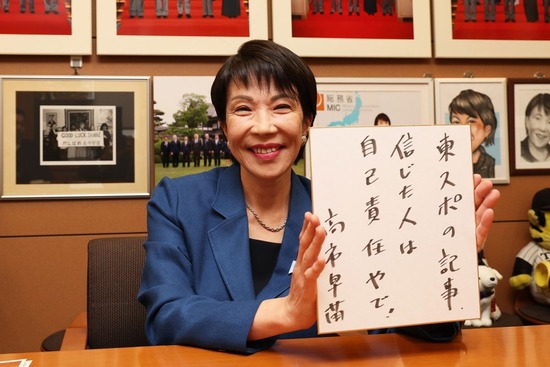 東スポの記事、
信じた人は
自己責任やで!
高市早苗
総務省
MIC
GOOD LUCK